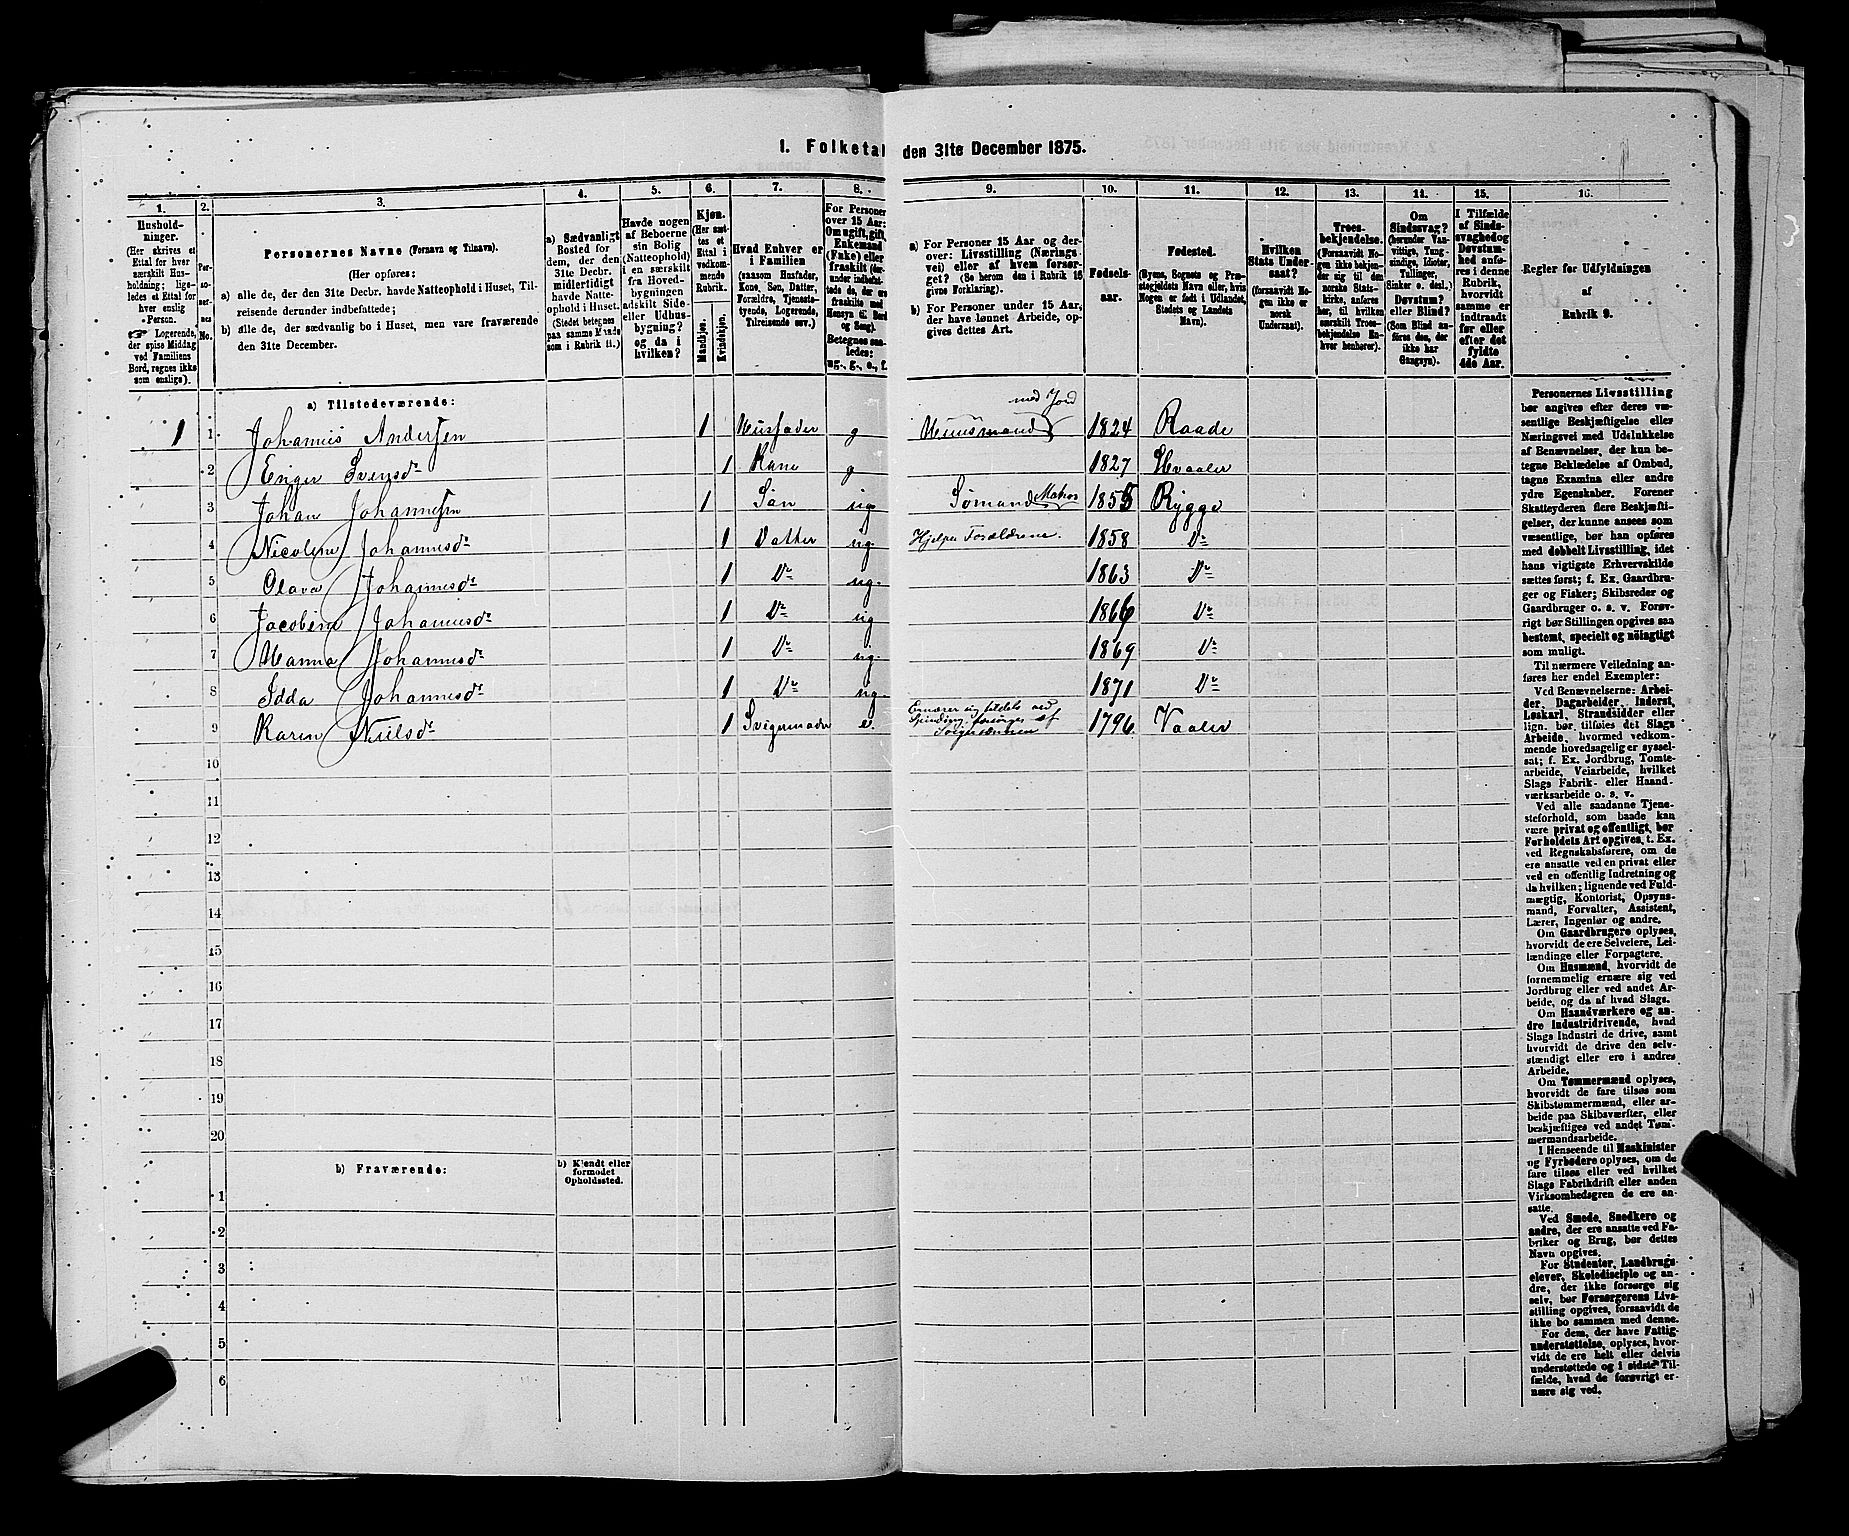 1. Folketal den 31te December 1875.
1.
2.
3.
4.
5.
6.
7.
8.
9.
10.
11.
12.
13.
14.
15.
16.
Hushold-
ninger.
(Her skrives et
Ettal for hver
særskilt Hus-
holdning; lige-
ledes et Ettal for
hver enslig
Person.
☞ Logerende,
der spise Middag
ved Familiens
Bord, regnes ikke
som enslige).
Per-
so-
ner-
nes
No.
Personernes Navne (Fornavn og Tilnavn).
(Her opføres:
a) alle de, der den 31te Decbr. havde Natteophold i Huset, Til-
reisende derunder indbefattede;
b) alle de, der sædvanlig bo i Huset, men vare fraværende
den 31te December.
a) Sædvanligt
Bosted for
dem, der den
31te Decbr.
midlertidigt
havde Natte-
ophold i Huset.
(Stedet betegnes
paa samme Maade
som i Rubrik 11.)
Havde nogen
af Beboerne
sin Bolig
(Natteophold)
i en særskilt
fra Hoved-
bygningen
adskilt Side-
eller Udhus-
bygning?
og da i
hvilken?
Kjøn.
(Her sæt-
tes et
Ettal i
vedkom-
mende
Rubrik.
Mandkjøn.
Kvindekjøn.
Hvad Enhver er
i Familien
(saasom Husfader,
Kone, Søn, Datter,
Forældre, Tjeneste-
tyende, Logerende,
Tilreisende osv.)
For Personer
over 15 Aar:
Om ugift, gift,
Enkemand
(Enke) eller
fraskilt (der-
under indbefat-
tede de, der ere
fraskilte med
Hensyn til Bord
og Seng).
Betegnes saa-
ledes:
ug., g., e., f.
a) For Personer 15 Aar og der-
over: Livsstilling (Nærings-
vei) eller af hvem forsør-
get? (Se herom den i Rubrik 16
givne Forklaring).
b) For Personer under 15 Aar,
der have lønnet Arbeide, op-
gives dettes Art.
Fødsels-
aar.
Fødested.
(Byens, Sognets og Præ-
stegjeldets Navn eller, hvis
Nogen er født i Udlandet,
Stedets og Landets
Navn).
Hvilken
Stats Under-
saat?
(forsaavidt No-
gen ikke er
norsk
Undersaat).
Troes-
bekjendelse.
(Forsaavidt No-
gen ikke bekjen-
der sig til den
norske Stats-
kirke, anføres
her, til hvilken
særskilt Troes-
bekjendelse En-
hver henhører).
Om
Sindssvag?
(herunder Van-
vittige, Tung-
sindige, Idioter,
Tullinger,
Sinker o. desl.)
Døvstum?
eller Blind?
(Som Blind an-
føres den, der
ikke har
Gangsyn).
I Tilfælde
af Sinds-
svaghed og
Døvstum-
hed anfø-
res i denne
Rubrik,
hvorvidt
samme er
indtraadt
før eller
efter det
fyldte
4de Aar.
Regler for Udfyldningen
af
Rubrik 9.
a) Tilstedeværende:
med Jord
1 1 Johannes Andersen 1 Husfader g Huusmand 1824 Raade
2 Enger Svensdr 1 Kone g 1827 Hvaaler
3 Johan Johannesen 1 Søn ug Sømand Matros 1855 Rygge
4 Nicoline Johannesdr 1 Datter ug. Hjelper Forældrene. 1858 Do
5 Olava Johannesdr 1 Do ug. 1863 Do
6 Jacobine Johannesdr 1 Do ug 1866 Do
7 Hanna Johannesdr 1 Do ug. 1869 Do
8 Idda Johannesdr 1 Do ug. 1871 Do
9 Karen Nielsdr 1 Svigermoder e. Ernærer sig tildels ved
Spinding, forsørges af
Svigersønnen 1796 Vaaler
10
11
12
13
14
15
16
17
18
19
20
b) Fraværende:
b) Kjendt eller
formodet
Opholdssted.
1
2
3
4
5
6
Personernes Livsstilling
bør angives efter deres væ-
sentlige Beskjæftigelse eller
Næringsvei med Udelukkelse
af Benævnelser, der kun be-
tegne Beklædelse af Ombud,
tagne Examina eller andre
ydre Egenskaber. Forener
Skatteyderen flere Beskjæfti-
gelser, der kunne ansees som
væsentlige, bør han opføres
med dobbelt Livsstilling, idet
hans vigtigste Erhvervskilde
sættes først; f. Ex. Gaardbru-
ger og Fisker; Skibsreder og
Gaardbruger o. s. v. Forøv-
rigt bør Stillingen opgives saa
bestemt, specielt og nøiagtigt
som muligt.
Til nærmere Veiledning an-
føres her endel Exempler:
Ved Benævnelserne: Arbei-
der, Dagarbeider, Inderst,
Løskarl, Strandsidder eller
lign. bør tilføies det Slags
Arbeide, hvormed vedkom-
mende hovedsagelig er syssel-
sat; f. Ex. Jordbrug, Tomte-
arbeide, Veiarbeide, hvilket
Slags Fabrik- eller Haand-
værksarbeide o. s. v.
Ved alle saadanne Tjene-
steforhold, som baade kan
være privat og offentligt, bør
Forholdets Art opgives, t. Ex.
ved Regnskabsførere, om de
ere ansatte ved en privat eller
ved en offentlig Indretning og
da hvilken; lignende ved Fuld-
mægtig, Kontorist, Opsyns-
mand, Forvalter, Assistent,
Lærer, Ingeniør og andre.
Om Gaardbrugere oplyses,
hvorvidt de ere Selveiere, Lei-
lændinge eller Forpagtere.
Om Husmænd, hvorvidt de
fornemmelig ernære sig ved
Jordbrug eller ved andet Ar-
beide, og da af hvad Slags.
Om Haandværkere og an-
dre Industridrivende, hvad
Slags Industri de drive, samt
hvorvidt de drive den selv-
stændigt eller ere i andres
Arbeide.
Om Tømmermænd oplyses,
hvorvidt de fare tilsøs som
Skibstømmermænd, eller ar-
beide paa Skibsværfter, eller
beskjæftiges ved andet Tøm-
mermandsarbeide.
I Henseende til Maskinister
og Fyrbødere oplyses, om de
fare tilsøs eller ved hvilket
Slags Fabrikdrift eller anden
Virksomhedsgren de ere an-
satte.
Ved Smede, Snedkere og
andre, der ere ansatte ved Fa-
briker og Brug, bør dettes
Navn opgives.
For Studenter, Landbrugs-
elever, Skoledisciple og an-
dre, der ikke forsørge sig
selv, bør Forsørgerens Livs-
stilling opgives, forsaavidt de
ikke bo sammen med denne.
For dem, der have Fattig-
understøttelse, oplyses, hvor-
vidt de ere helt eller delvis
understøttede og i sidste Til-
fælde, hvad de forøvrigt er-
nære sig ved.